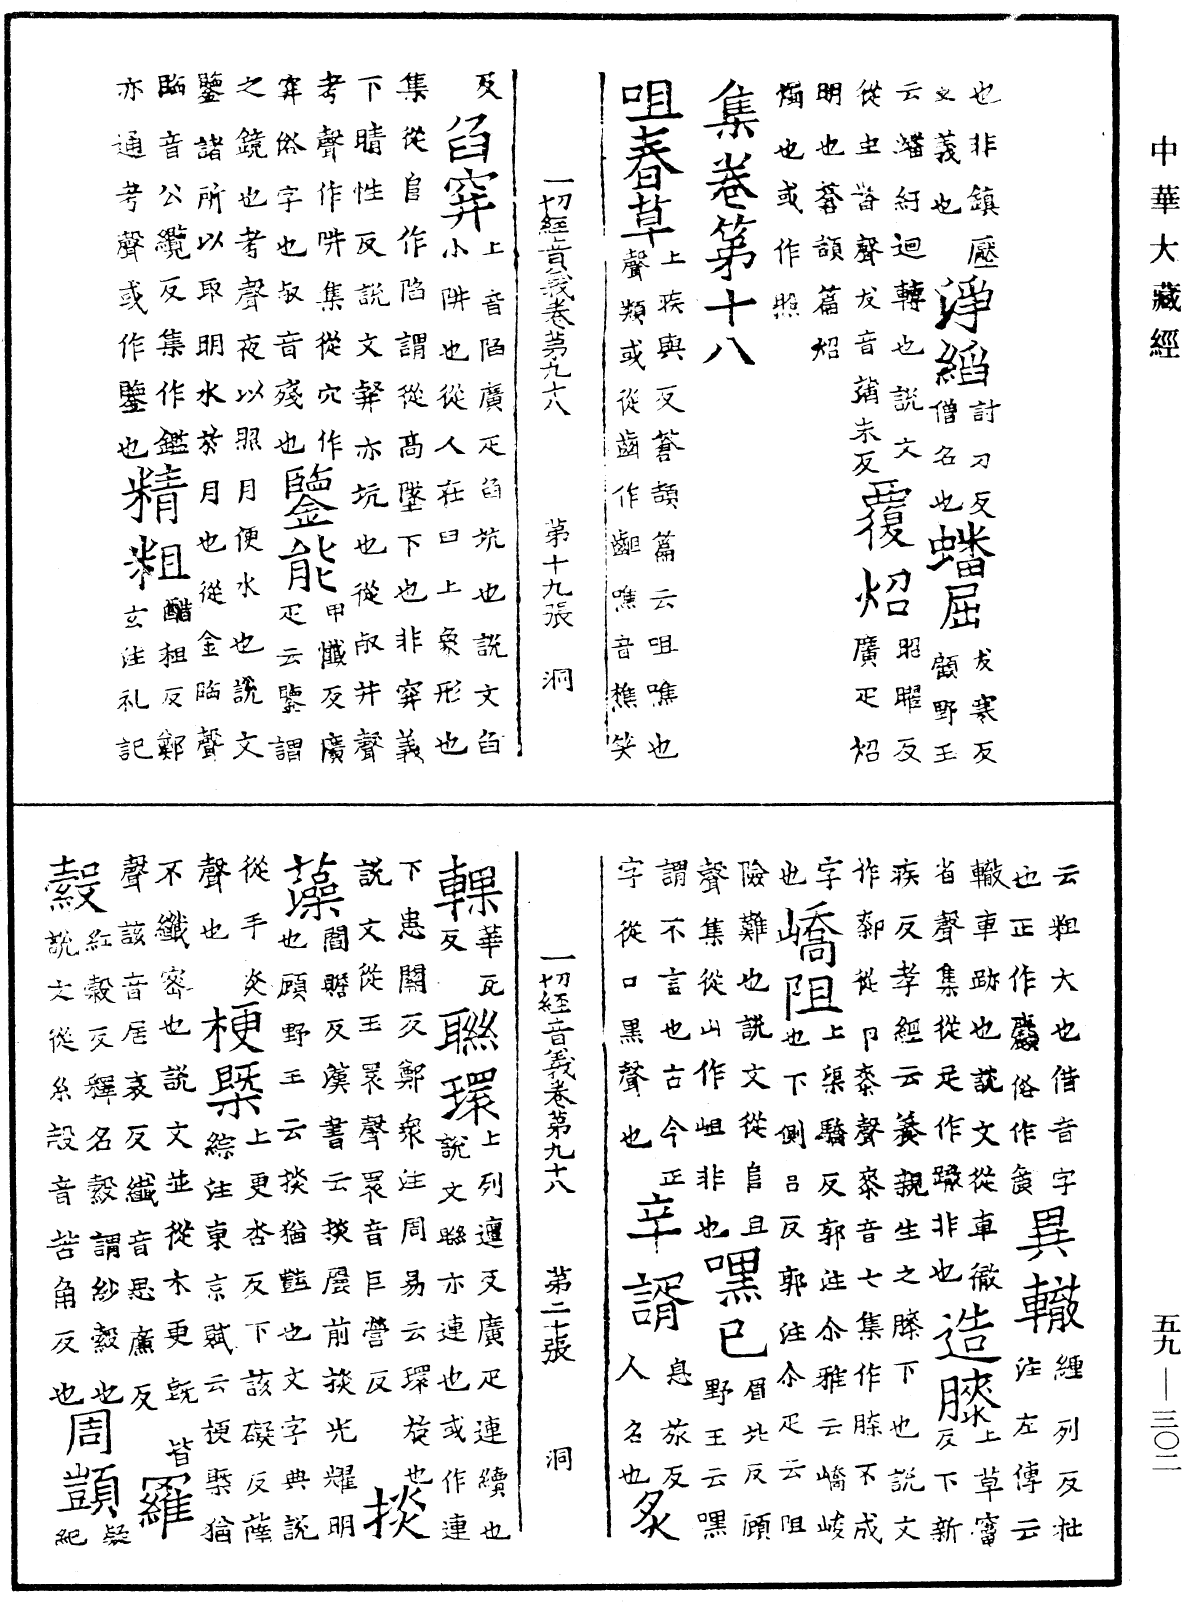 中華大藏經
也非鎮壓 淨縚 討刀反 蟠屈 犮寒反
文義也 僧名也 顧野王
云蟠紆迴轉也說文 昭曜反
從虫番聲犮音蒲末反 覆炤 廣疋炤
明也蒼頡篇炤
燭也或作照
集卷第十八
咀春草 上疾與反蒼頡篇云咀嚼也
聲類或從齒作齟嚼音樵笑
一切經音義卷第九十八 第十九張 洞
反 臽穽 上音陷廣疋臽坑也說文臽
小阱也從人在臼上象形也
集從𨸏作陷謂從高墜下也非穽義
下晴性反說文穽亦坑也從𣦼井聲
考聲作阱集從穴作 甲懺反廣
穽俗字也𣦼音殘也 鑒能 疋云鑒謂
之鏡也考聲夜以照月便水也說文
鑒諸所以取明水於月也從金臨聲
臨音公纜反集作鑑 醋租反鄭
亦通考聲或作鑒也 精粗 玄注礼記
云粗大也借音字 纏列反杜
也正作麤俗作麁 異轍 注左傳云
轍車跡也說文從車徹 上草竈
省聲集從足作蹽非也 造膝 反下新
疾反孝經云養親生之膝下也說文
作厀從卩桼聲桼音七集作膝不成
字 嶠阻 上渠驕反郭注尒雅云嶠峻
也 也下側呂反郭注尒疋云阻
險難也說文從𨸏且 眉北反顧
聲集從山作岨非也 嘿已 野王云嘿
謂不言也古今正 息旅反
字從口黑聲也 辛諝 人名也 炙
一切經音義卷第九十八 第二十張 洞
輠 華瓦反 聯環 上列邅反廣疋連續也
說文聯亦連也或作連
下患關反鄭衆注周易云環旋也
說文從玉睘聲睘音巨營反 掞
藻 閻贍反漢書云掞層前掞光耀明
也顧野王云掞猶豔也文字典說
從手炎 上更杏反下該礙反薛
聲也 梗槩 綜注東京賦云梗槩猶
不纖密也說文並從木更旣皆
聲該音居哀反纖音思廉反 羅
縠 紅穀反釋名縠謂紗縠也
說文從糸𣪊音苦角反也 周顗 疑紀
五九—三〇二